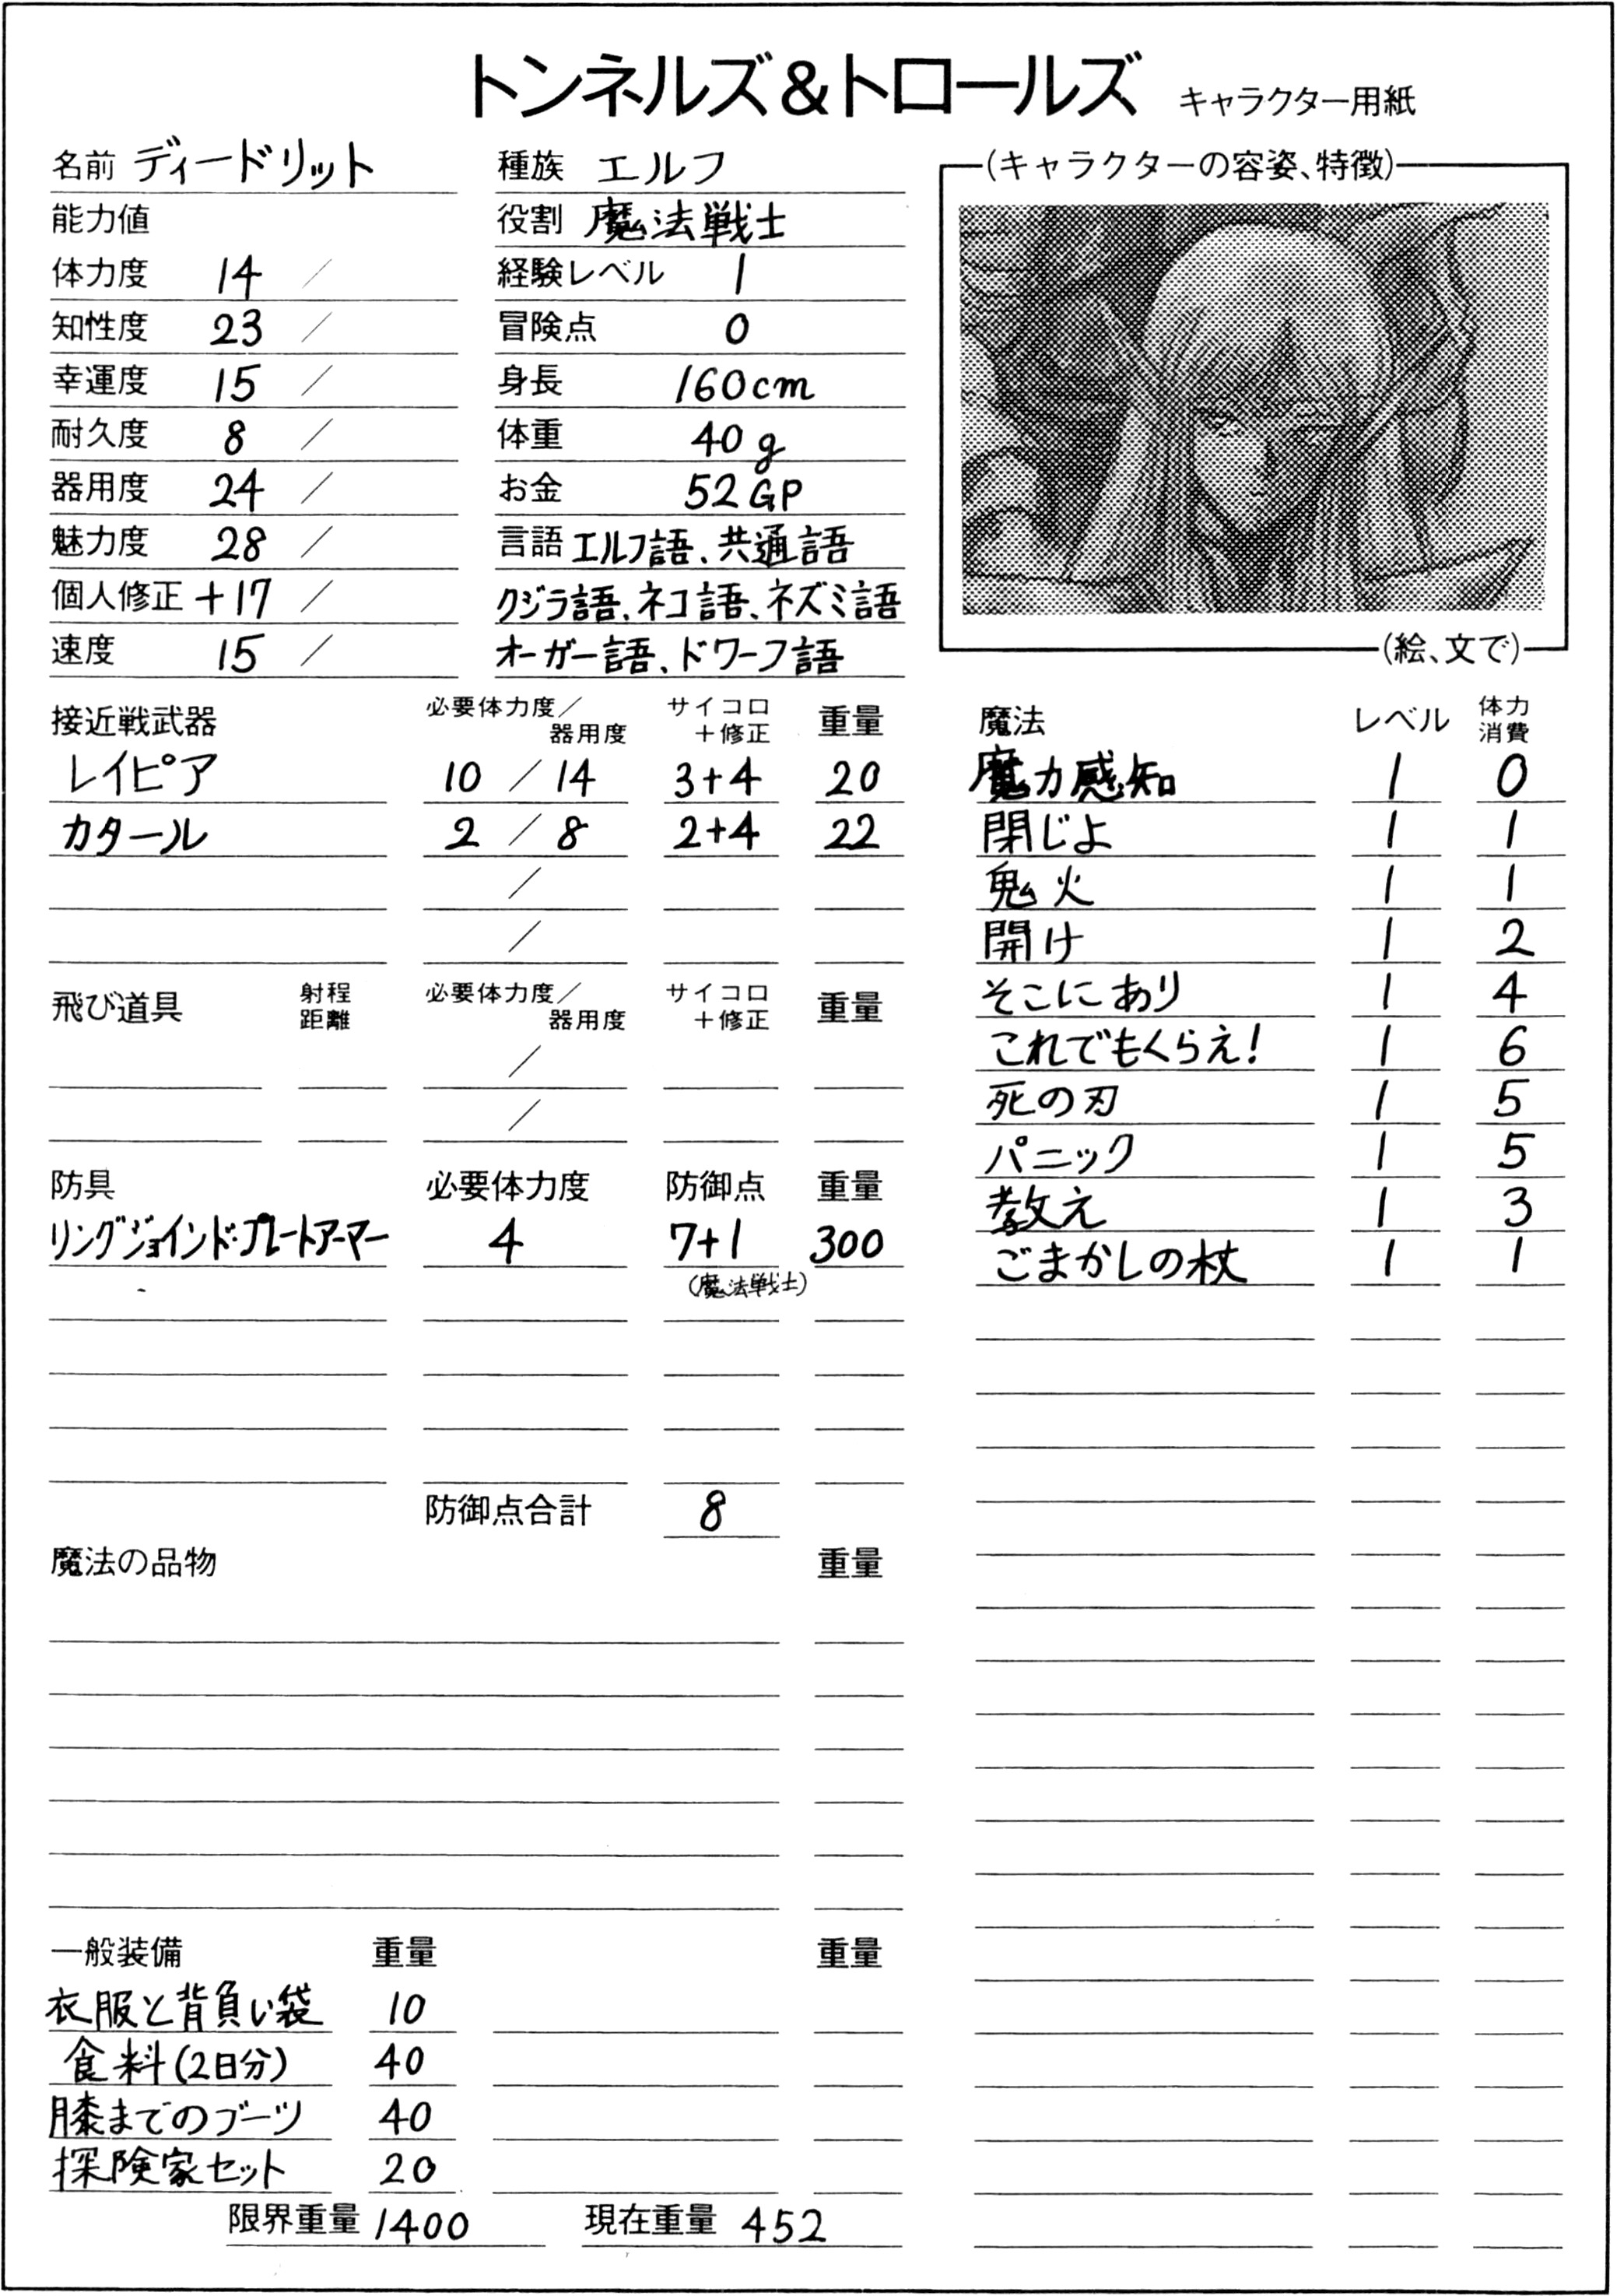 トンネルズ&トロールズ キャラクター用紙
名前 ディードリット
能力値
体力度 14 /
知性度 23 /
幸運度 15 /
耐久度 8 /
器用度 24 /
魅力度 28 /
個人修正 +17 /
速度 15 /
種族 エルフ
役割 魔法戦士
経験レベル 1
冒険点 0
身長 160cm
体重 40g
お金 52GP
言語 エルフ語、共通語
クジラ語、ネコ語、ネズミ語
オーガー語、ドワーフ語
(キャラクターの容姿、特徴)
(絵、文で)
接近戦武器 必要体力度/器用度 サイコロ+修正 重量
レイピア 10 / 14 3+4 20
カタール 2 / 8 2+4 22
/
/
飛び道具 射程距離 必要体力度/器用度 サイコロ+修正 重量
/
/
防具 必要体力度 防御点 重量
リングジョインド・プレートアーマー 4 7+1 300
(魔法戦士)
防御点合計 8
魔法の品物 重量
一般装備 重量 重量
衣服と背負い袋 10
食料(2日分) 40
膝までのブーツ 40
探険家セット 20
限界重量 1400 現在重量 452
魔法 レベル 体力消費
魔力感知 1 0
閉じよ 1 1
鬼火 1 1
開け 1 2
そこにあり 1 4
これでもくらえ! 1 6
死の刃 1 5
パニック 1 5
教え 1 3
ごまかしの杖 1 1